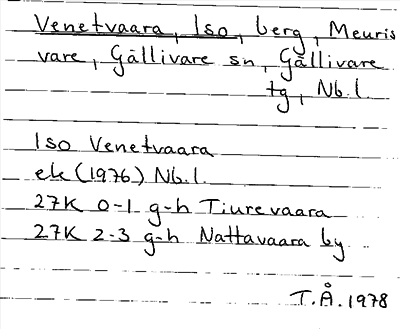 Venetvaara, Iso, berg, Meuris
vare, Gällivare sn, Gällivare
tg, Nb.l.
Iso Venetvaara
ek (1976) Nb.l.
27K 0-1 g-h Tiurevaara
27K 2-3 g-h Nattavaara by
T.Å. 1978